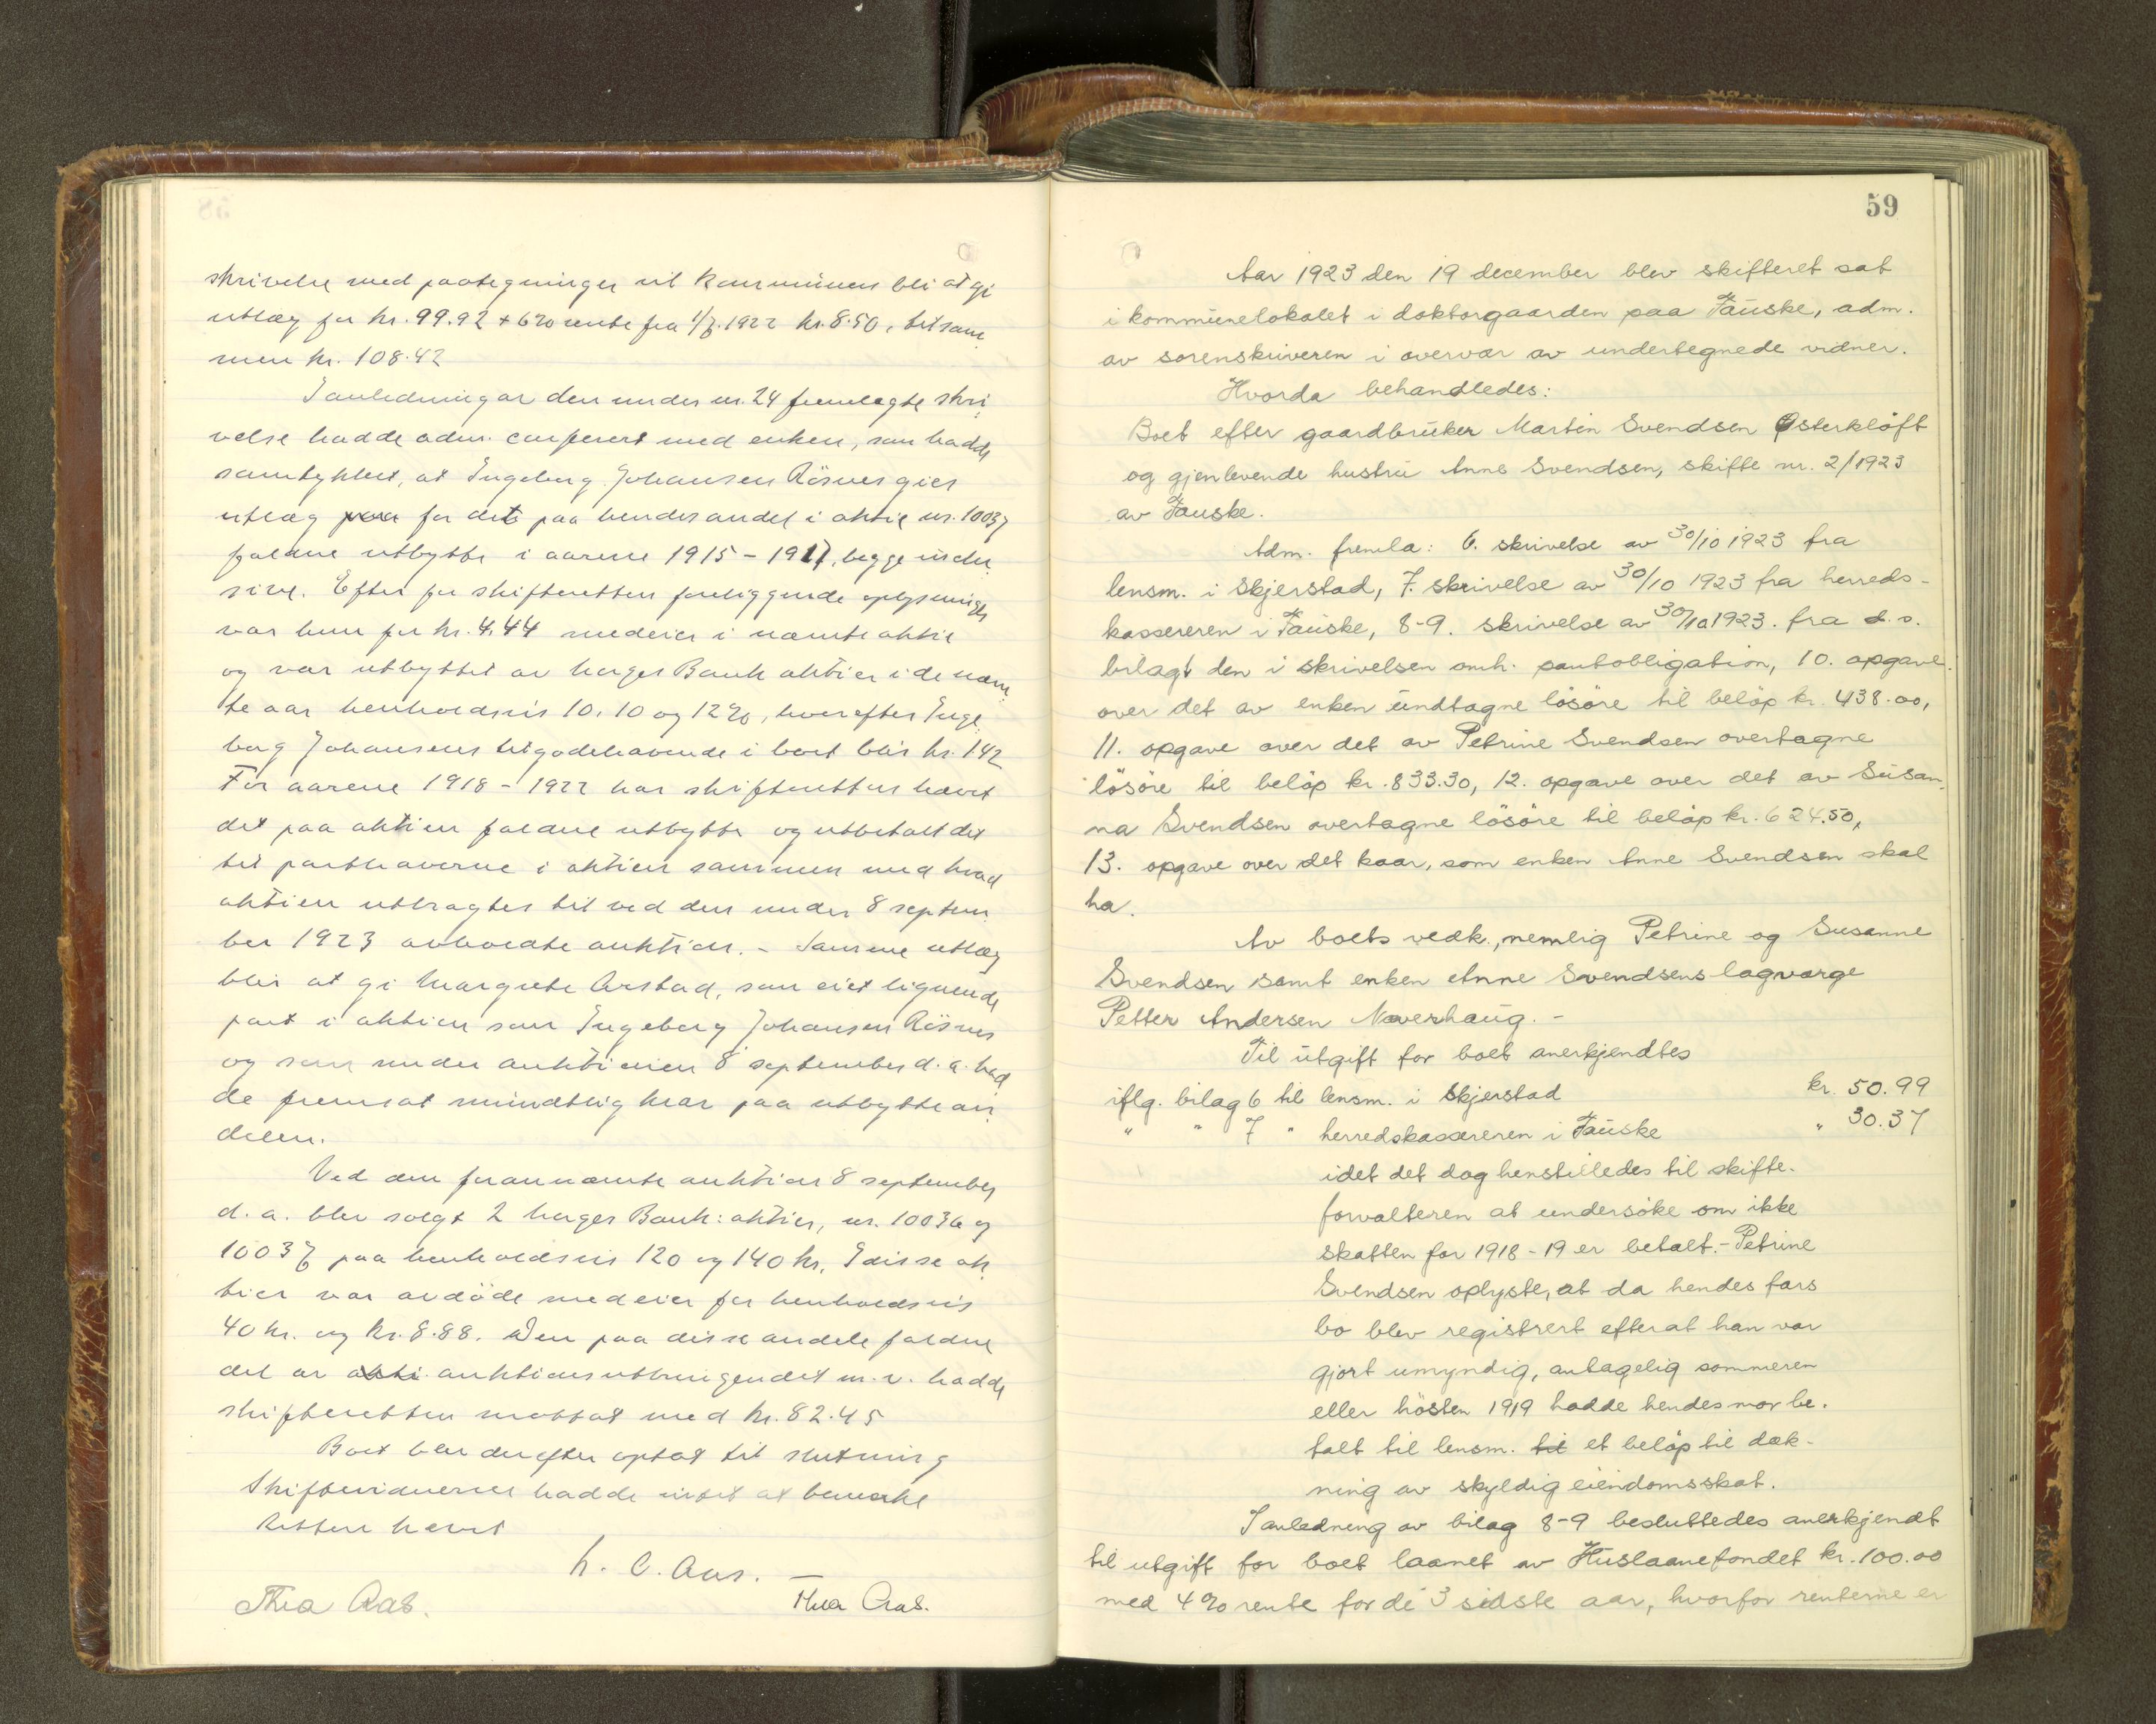 skrivelse med paategninger vil kommunen bli at gi
utlæg for kr. 99.92 + 6% rente fra 1/7.1922 kr. 8.50, tilsam
men kr. 108.42
I anledning av den under nr. 24 fremlagte skri
velse hadde adm. confereret med enken, som hadde
samtykket, at Ingeborg Johansen Røsnes gies
utlæg for det paa hendes andel i aktie nr. 10037
faldne utbytte i aarene 1915 - 1917, begge inclu
sive. Efter for skifteretten foreliggende oplysninger
var hun for kr. 4.44 medeier i nævnte aktie
og var utbyttet av Norges Bank aktier i de nævn
te aar henholdsvis 10, 10 og 12%, hvorefter Inge
borg Johansens tilgodehavende i boet blir kr. 1.42
For aarene 1918 - 1922 har skifteretten hævet
det paa aktien faldne utbytte og utbetalt det
til parthaverne i aktien sammen med hvad
aktien utbragtes til ved den under 8 septem
ber 1923 avholdte auktion. - Samme utlæg
blir at gi Margrete Arstad, som eiet lignende
part i aktien som Ingeborg Johansen Røsnes
og som under auktionen 8 september d.a. had
de fremsat mundtlig krav paa utbytte an
delen.
Ved den forannævnte auktion 8 september
d.a. blev solgt 2 Norges Bank: aktier, nr. 10036 og
10037 paa henholdsvis 120 og 140 kr. I disse ak
tier var avdøde medeier for henholdsvis
40 kr. og kr. 8.88. Den paa disse andele faldne
del av auktionsutbringendet m.v. hadde
skifteretten mottat med kr. 82.45
Boet blev derefter optat til slutning
Skiftevidnerne hadde intet at bemerke
Retten hævet
Thea Aas.
Thea Aas.
59
Aar 1923 den 19 december blev skifteret sat
i kommunelokalet i doktorgaarden paa Fauske, adm.
av sorenskriveren i overvær av undertegnede vidner.
Hvorda behandledes:
Boet efter gaardbruker Martin Svendsen Østerkløft
og gjenlevende hustru Anne Svendsen, skifte nr. 2/1923
av Fauske.
Adm. fremla: 6. skrivelse av 30/10 1923 fra
lensm. i Skjerstad, 7. skrivelse av 30/10 1923 fra herreds-
kassereren i Fauske, 8-9. skrivelse av 30/10 1923. fra d.s.
bilagt den i skrivelsen omh. pantobligation, 10. opgave
over det av enken undtagne løsøre til beløp kr. 438.00,
11. opgave over det av Petrine Svendsen overtagne
løsøre til beløp kr. 833.30, 12. opgave over det av Susan
na Svendsen overtagne løsøre til beløp kr. 624.50,
13. opgave over det kaar, som enken Anne Svendsen skal
ha.
Av boets vedk., nemlig Petrine og Susanne
Svendsen samt enken Anne Svendsens lagværge
Petter Andersen Naverhaug. -
Til utgift for boet anerkjendtes
iflg. bilag 6 til lensm. i Skjerstad kr. 50.99
" " 7 " herredskassereren i Fauske " 30.37
idet det dog henstilledes til skifte-
forvalteren at undersøke om ikke
skatten for 1918 - 19 er betalt. - Petrine
Svendsen oplyste, at da hendes fars
bo blev registrert efterat han var
gjort umyndig, antagelig sommeren
eller høsten 1919 hadde hendes mor be-
talt til lensm. til et beløp til dæk-
ning av skyldig eiendomsskat.
I anledning av bilag 8-9 besluttedes anerkjendt
til utgift for boet laanet av Huslaanefondet kr. 100.00
med 4% rente for de 3 sidste aar, hvorfor renterne er